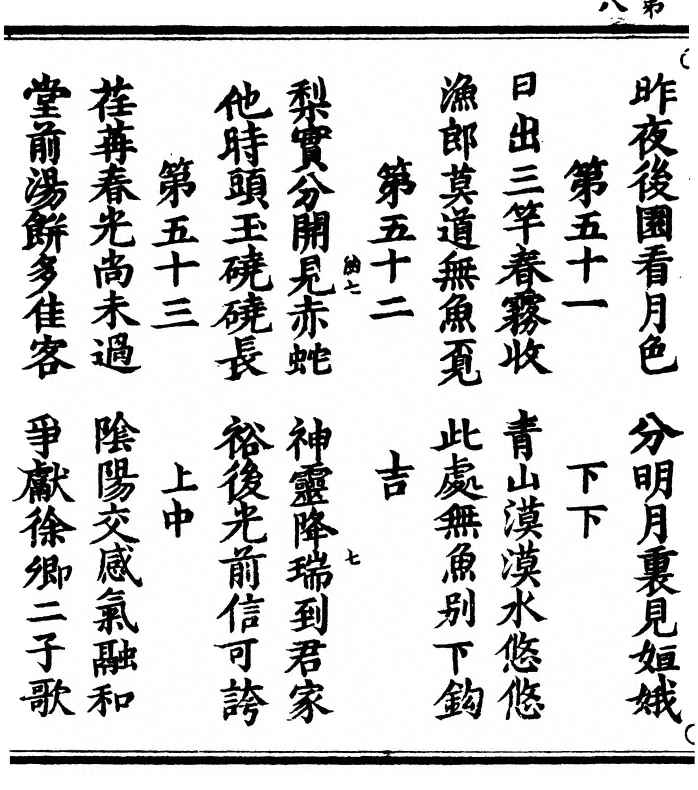 昨夜後園看月色 分明月裏見姮娥
第五十一 下下
日出三竿春霧收 青山漠漠水悠悠
漁郎莫道無魚覔 此處無魚别下鈎
第五十二 吉
七
梨實分開見赤蛇 神靈降瑞到君家
他時頭玉磽磽長 裕後光前信可誇
第五十三 上中
荏苒春光尚未過 隂陽交感氣融和
堂前湯餅多佳客 爭獻徐卿二子歌